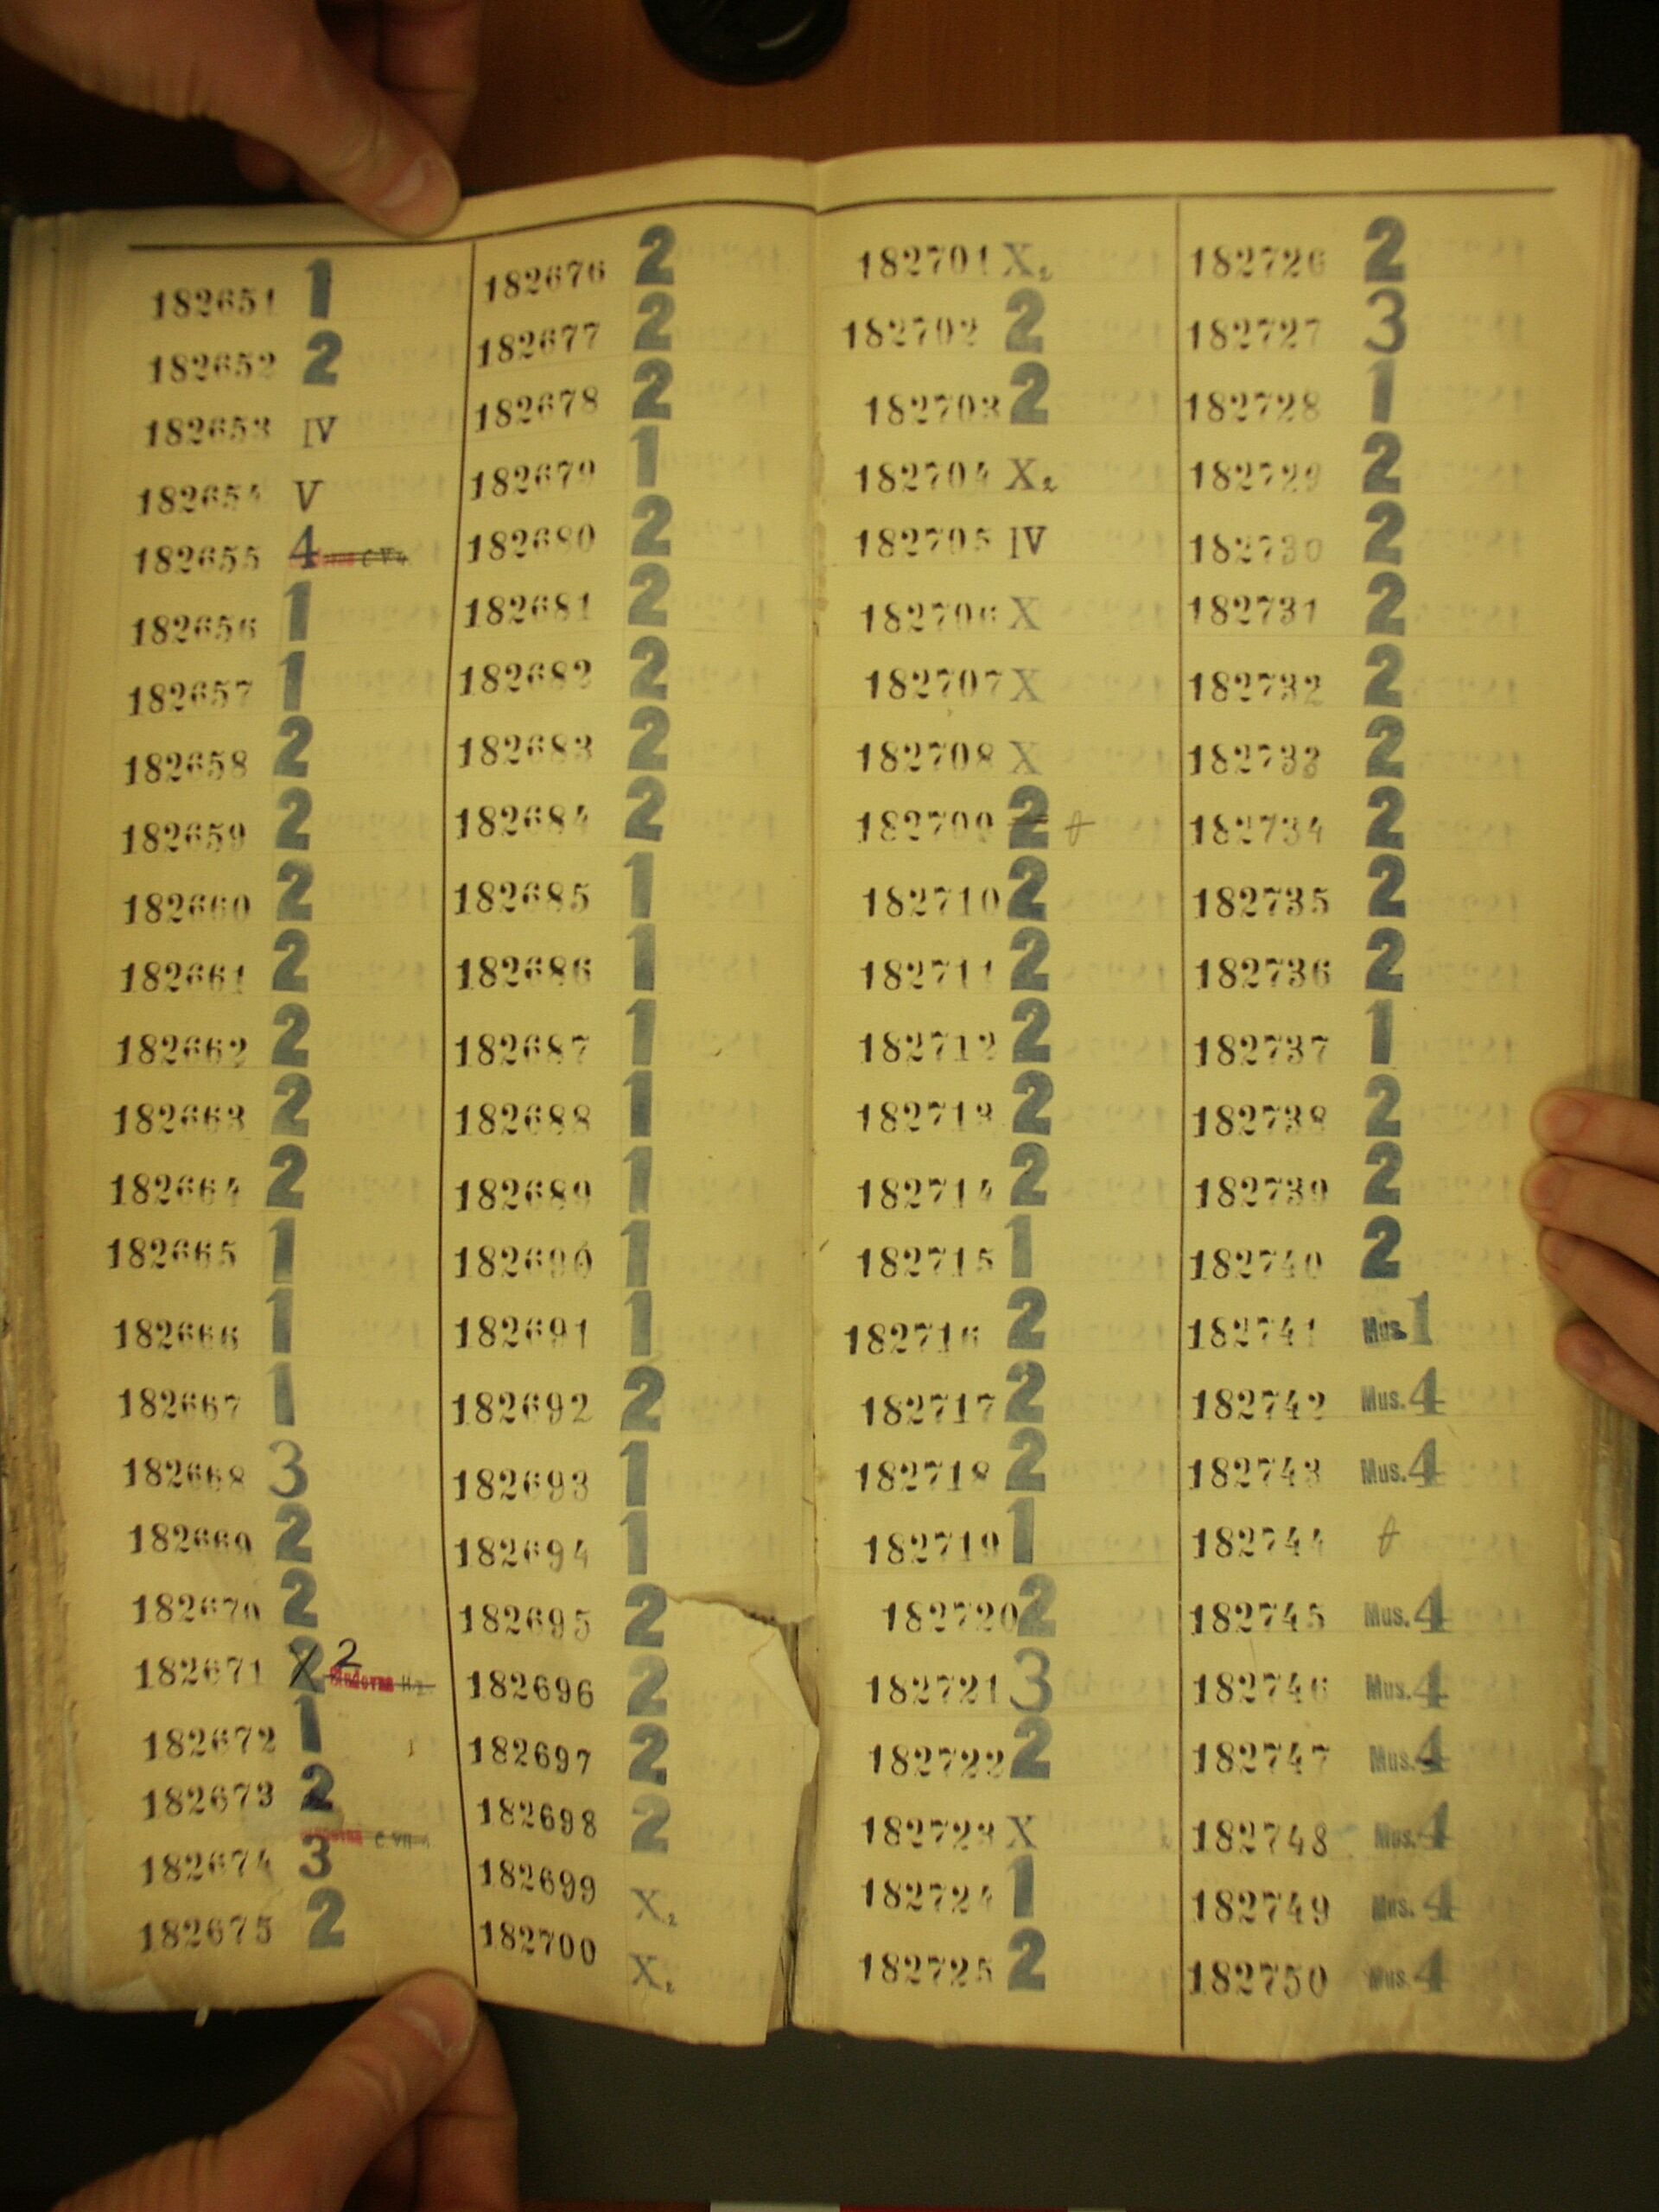 182651 1
182652 2
182653 IV
182654 V
182655 4
182656 1
182657 1
182658 2
182659 2
182660 2
182661 2
182662 2
182663 2
182664 2
182665 1
182666 1
182667 1
182668 3
182669 2
182670 2
182671 2
182672 1
182673 2
182674 3
182675 2
182676 2
182677 2
182678 2
182679 1
182680 2
182681 2
182682 2
182683 2
182684 2
182685 1
182686 1
182687 1
182688 1
182689 1
182690 1
182691 1
182692 2
182693 1
182694 1
182695 2
182696 2
182697 2
182698 2
182699 X₂
182700 X₂
182701 X₂
182702 2
182703 2
182704 X₂
182705 IV
182706 X
182707 X
182708 X
182709 2
182710 2
182711 2
182712 2
182713 2
182714 2
182715 1
182716 2
182717 2
182718 2
182719 1
182720 2
182721 3
182722 2
182723 X
182724 1
182725 2
182726 2
182727 3
182728 1
182729 2
182730 2
182731 2
182732 2
182733 2
182734 2
182735 2
182736 2
182737 1
182738 2
182739 2
182740 2
182741 Mus. 1
182742 Mus. 4
182743 Mus. 4
182744
182745 Mus. 4
182746 Mus. 4
182747 Mus. 4
182748 Mus. 4
182749 Mus. 4
182750 Mus. 4